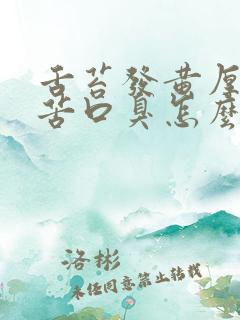 舌苔發黃厚
苦口臭怎麽
洛彬
未任同意禁止转载